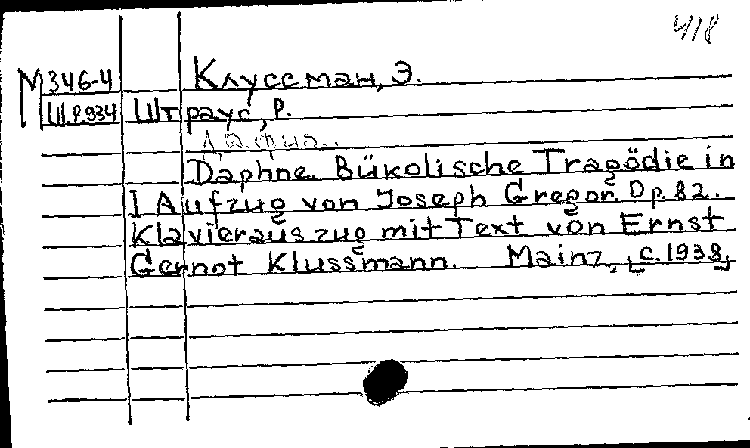 418
М 346-4 Клуссман, Э.
Ш.Р.934 Штраус, Р.
Дафна.
Daphne. Bükolische Tragödie in
1 Aufzug von Joseph Gregor. Op. 82.
Klavierauszug mit Text von Ernst
Gernot Klussmann. Mainz, [c. 1938]